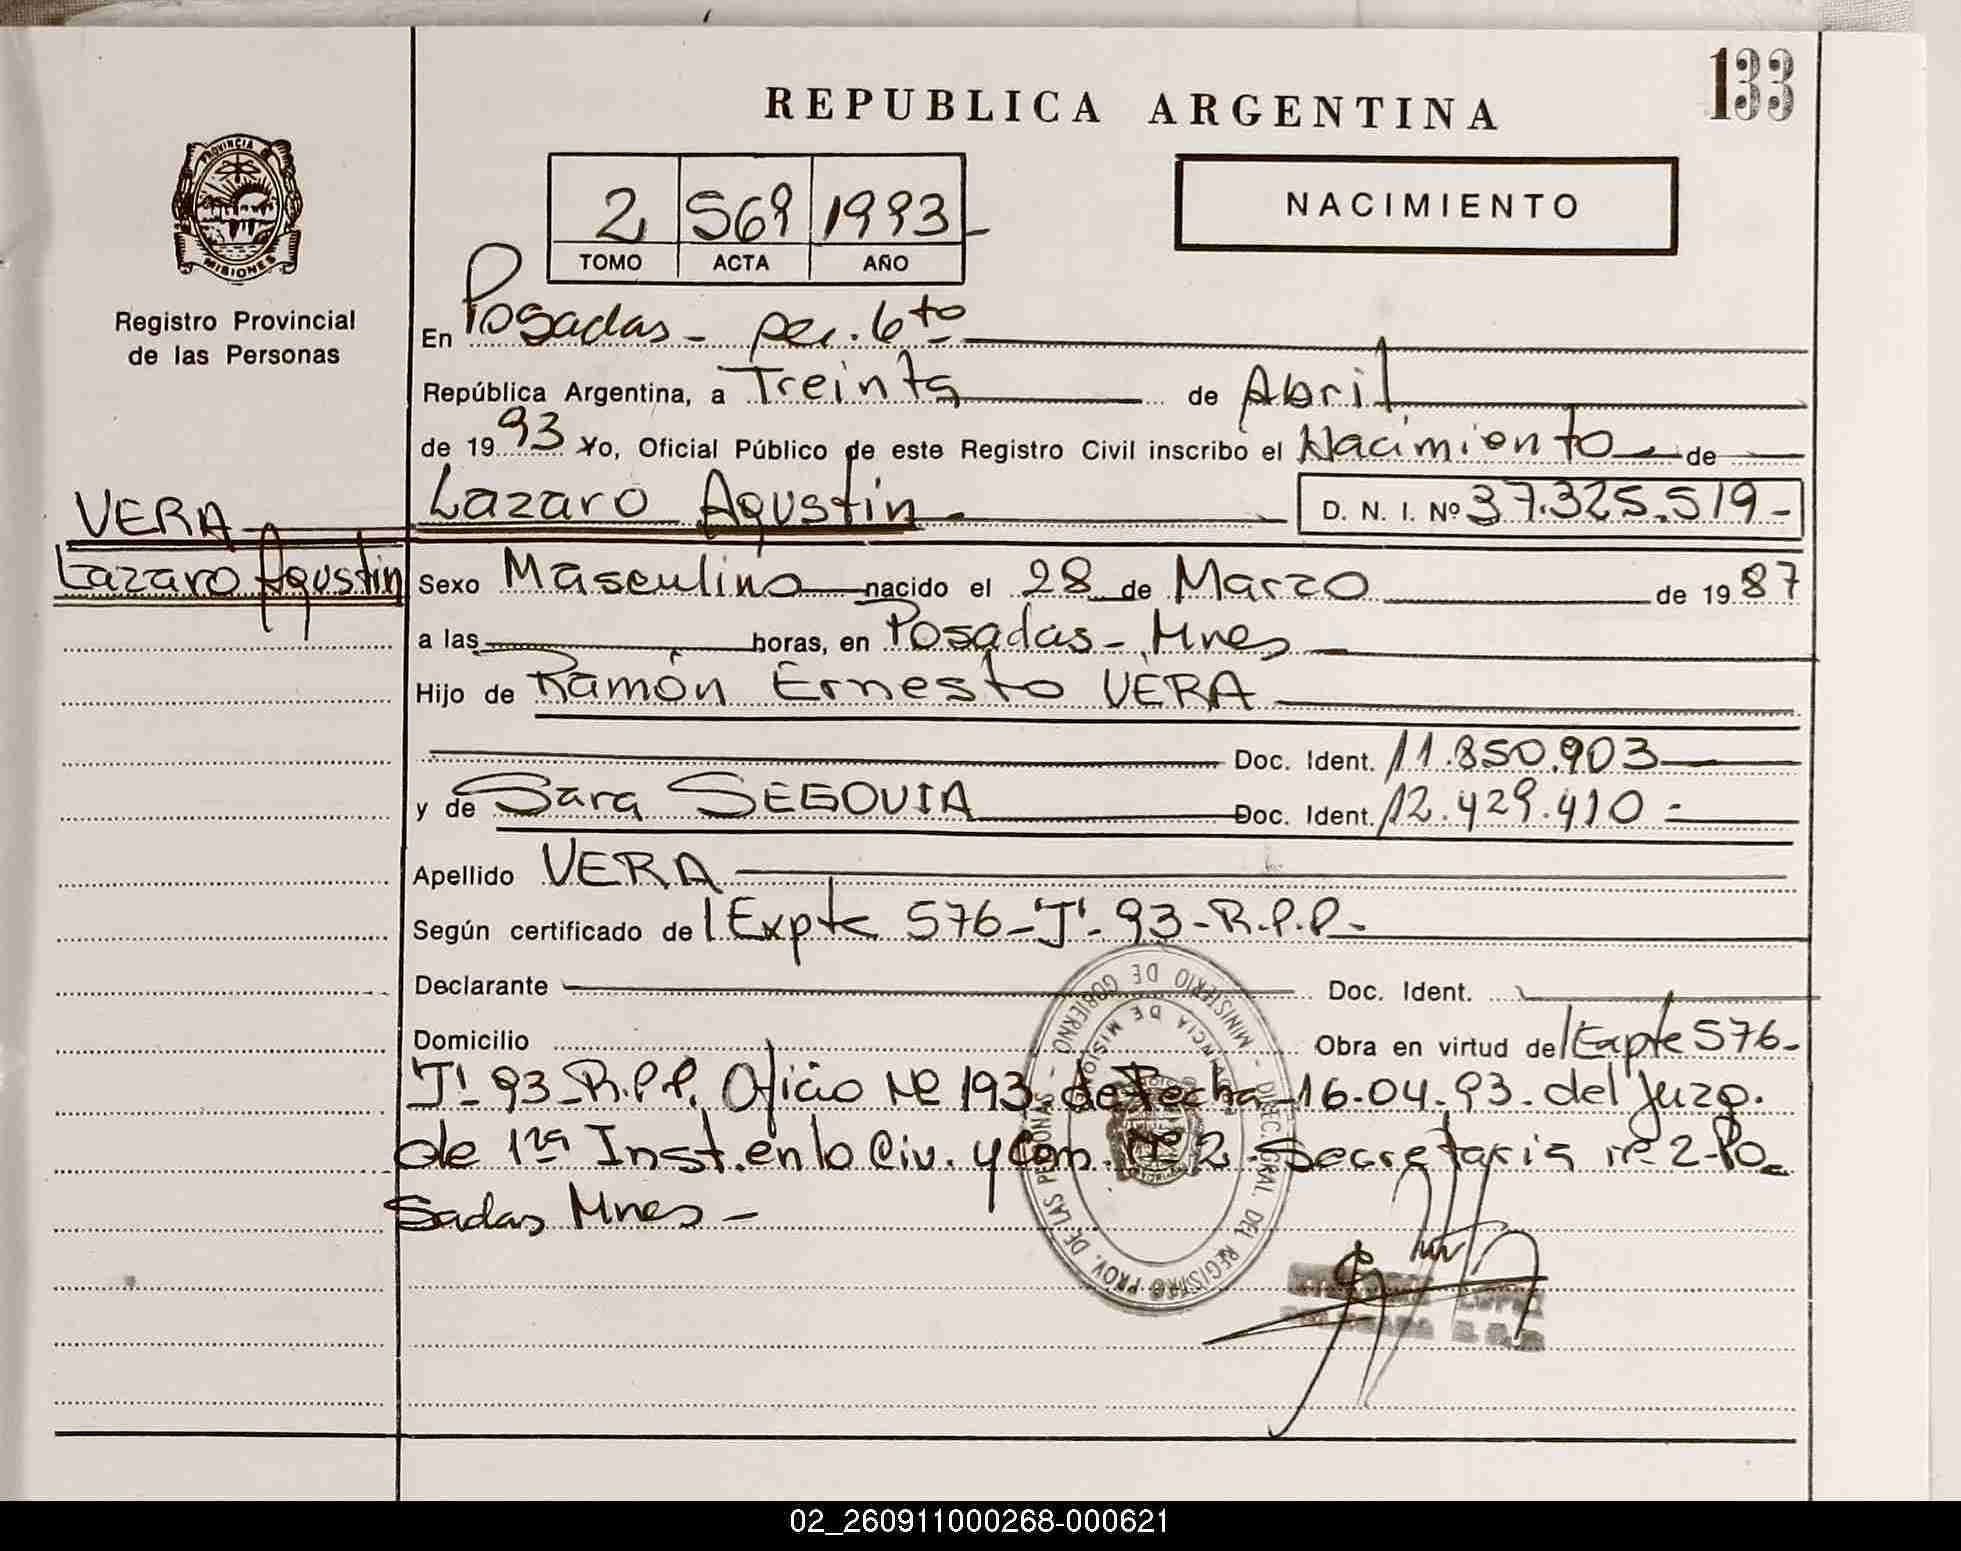 133
REPUBLICA ARGENTINA
PROVINCIA DE
MISIONES
2 569 1993-
TOMO ACTA AÑO
NACIMIENTO
Registro Provincial
de las Personas
En Posadas - per. 6to
República Argentina, a Treinta de Abril
de 1993 Yo, Oficial Público de este Registro Civil inscribo el Nacimiento de
VERA
Lazaro Agustin
Lazaro Agustin - D. N. I. Nº 37.325.519-
Sexo Masculino nacido el 28 de Marzo de 1987
a las horas, en Posadas - Mnes
Hijo de Ramón Ernesto VERA
Doc. Ident. 11.850.903
y de Sara SEGOVIA Doc. Ident. 12.429.410 -
Apellido VERA
Según certificado de l Expte 576-"J"-93-R.P.P-
Declarante Doc. Ident.
Domicilio Obra en virtud del Expte 576-
"J" 93-R.P.P. Oficio Nº 193 de Fecha 16-04-93. del Juzg.
de 1ra Inst. en lo Civ. y Com. Nº 2 Secretaria nº 2-Po
sadas Mnes -
MINISTERIO DE GOBIERNO - DIREC. GRAL. DEL REGISTRO PROV. DE LAS PERSONAS
PROVINCIA DE MISIONES
LOPEZ
02_260911000268-000621